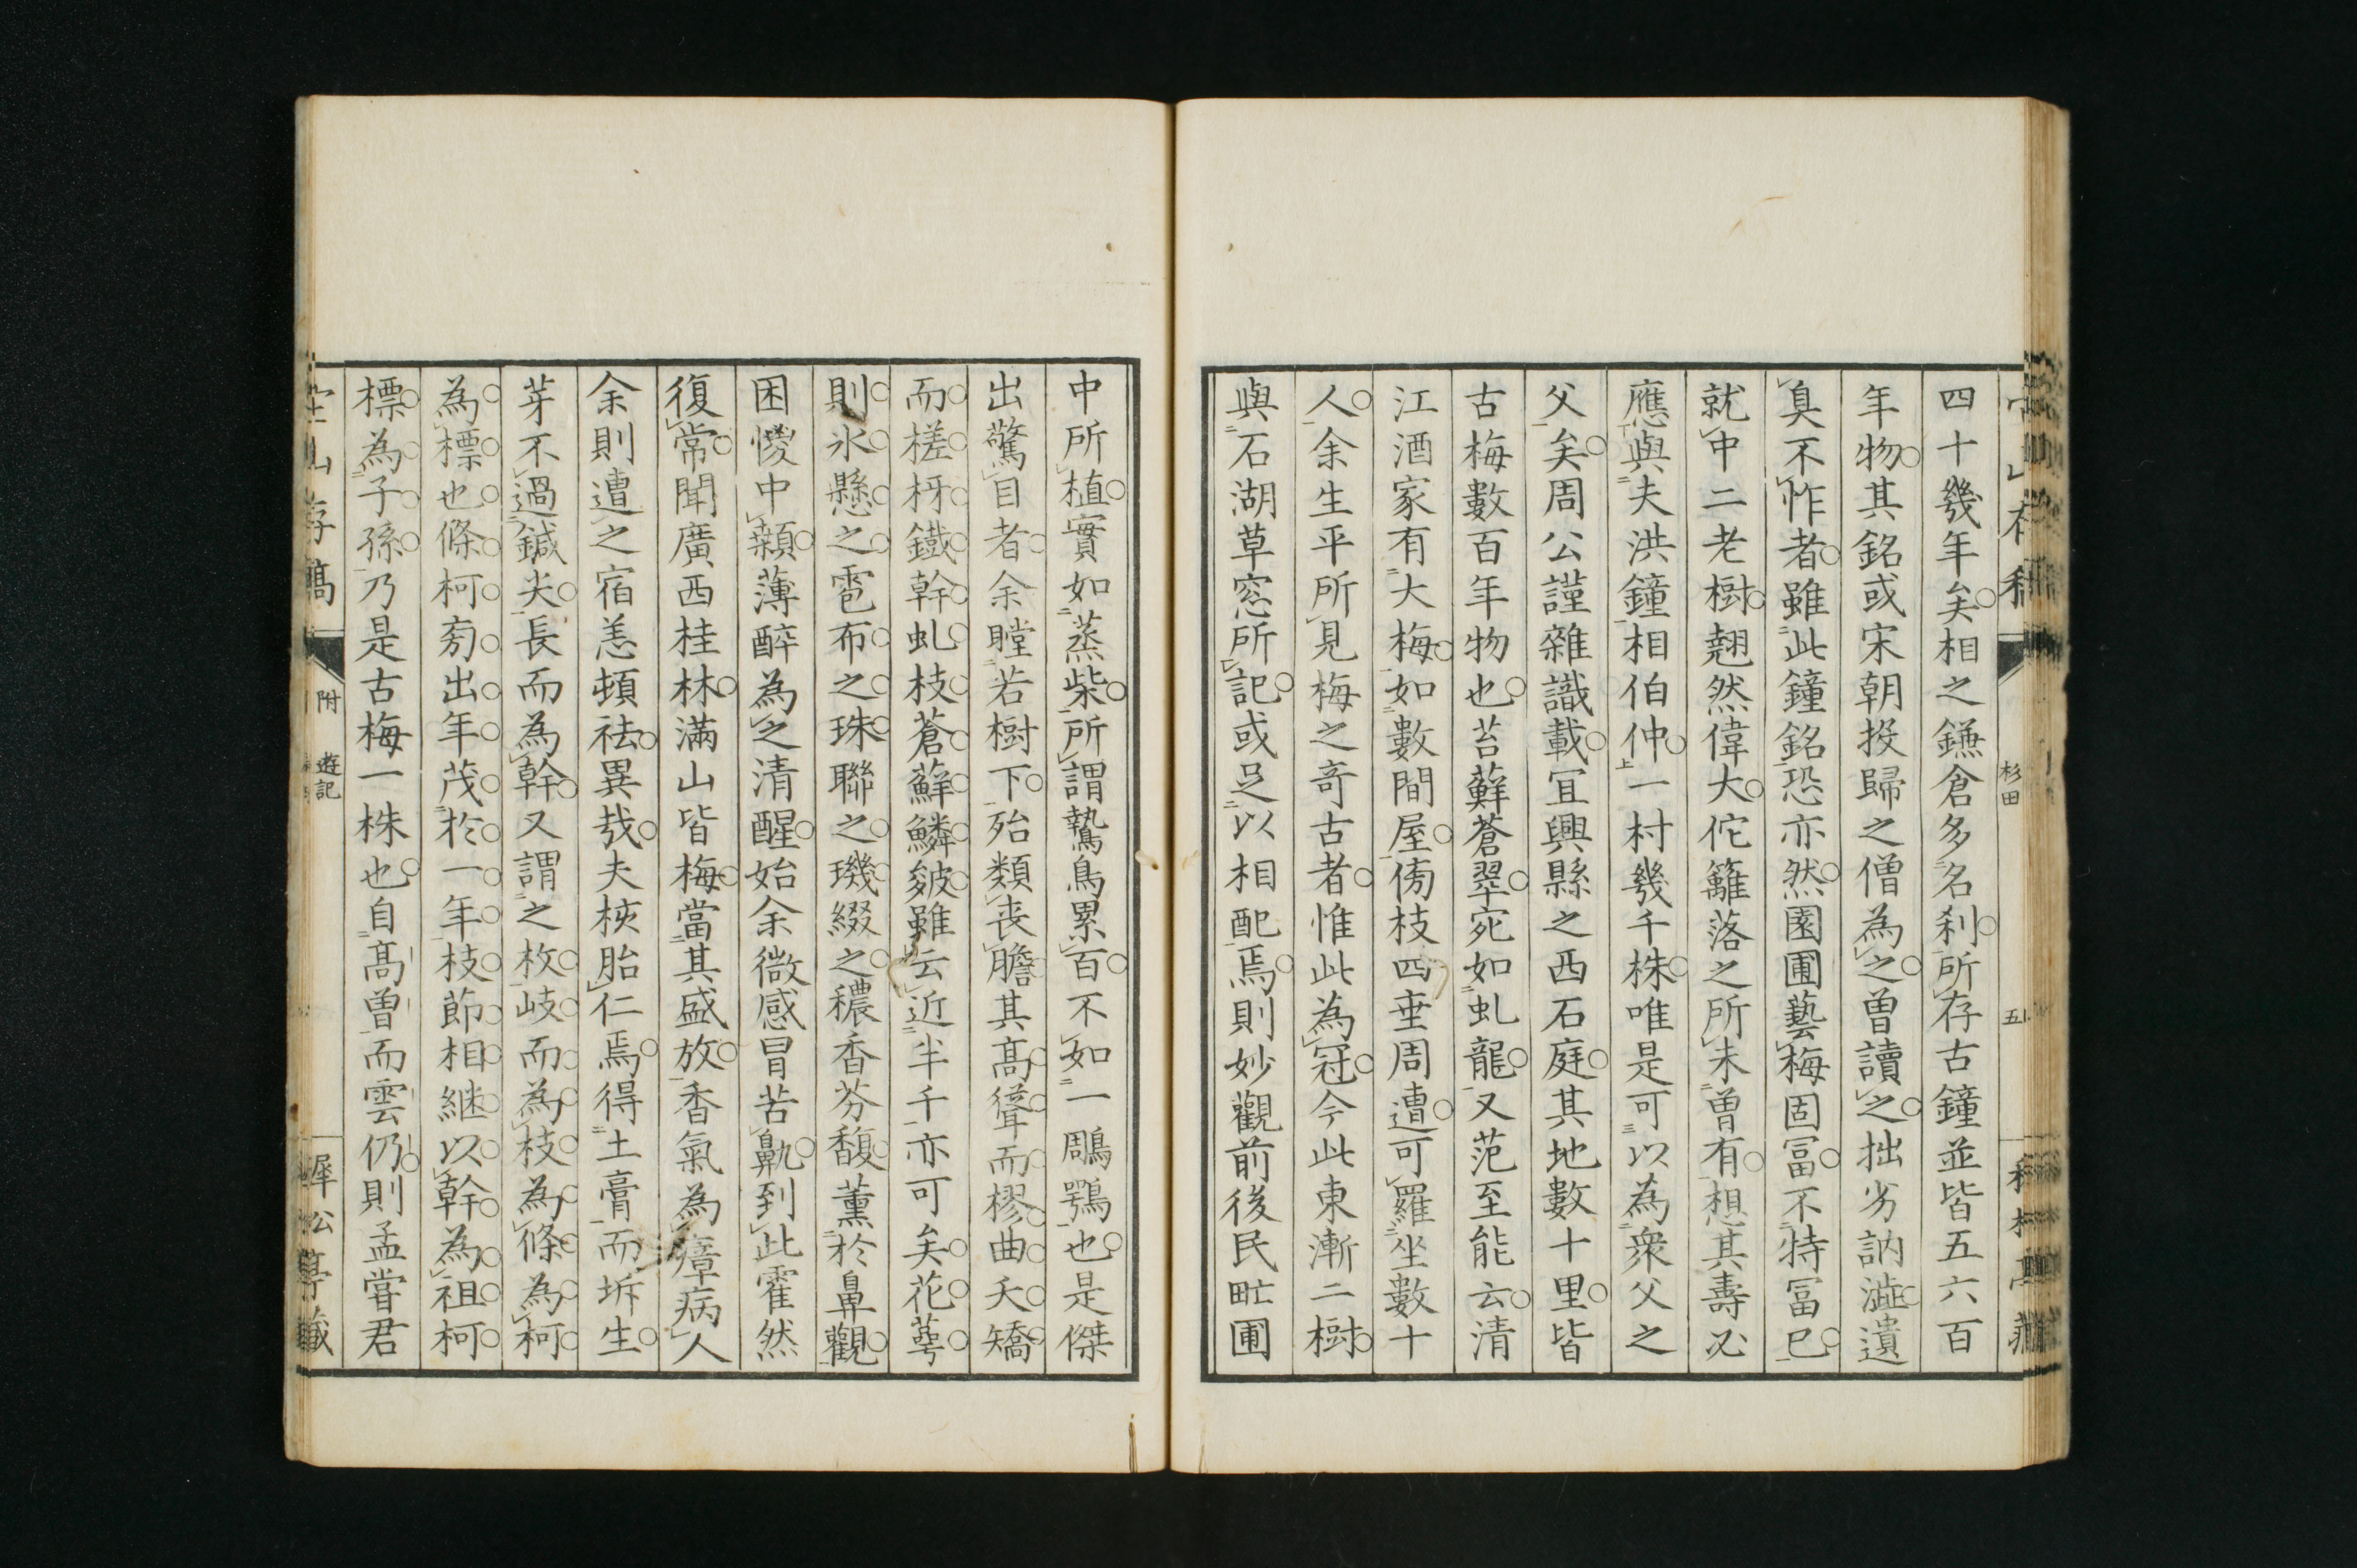 四十幾年矣相之鎌倉多名刹所存古鐘並皆五六百
年物其銘或宋朝投歸之僧為之曽讀之拙劣訥澁遺
臭不怍者雖此鐘銘恐亦然園圃藝梅固冨不特冨已
就中二老樹翹然偉大佗籬落之所未曽有想其壽必
應與夫洪鐘相伯仲一村幾千株唯是可以為衆父之
父矣周公謹雜識載冝興縣之西石庭其地數十里皆
古梅數百年物也苔蘚蒼翠宛如虬龍又范至能云清
江酒家有大梅如數間屋傍枝四垂周遭可羅坐數十
人余生平所見梅之奇古者惟此為冠今此東漸二樹
與石湖草窓所記或足以相配焉則妙觀前後民甿圃
杉田
五
中所植實如蒸柴所謂鷙鳥累百不如一鵰鶚也是傑
出驚目者余瞠若樹下殆類喪膽其髙聳而樛曲夭矯
而槎枒鐵幹虬枝蒼蘚鱗皴雖云近半千亦可矣花蕚
則氷懸之雹布之珠聯之璣綴之穠香芬馥薫於鼻觀
困惙中顙薄醉為之清醒始余微感冒苦鼽到此霍然
復常聞廣西桂林滿山皆梅當其盛放香氣為瘴病人
余則遭之宿恙頓祛異哉夫核胎仁焉得土膏而坼生
芽不過鍼尖長而為幹又謂之枚岐而為枝為條為柯
為標也條柯旁出年茂於一年枝節相継以幹為祖柯
標為子孫乃是古梅一株也自髙曽而雲仍則孟嘗君
山存稿
附 遊記
犀公亭藏